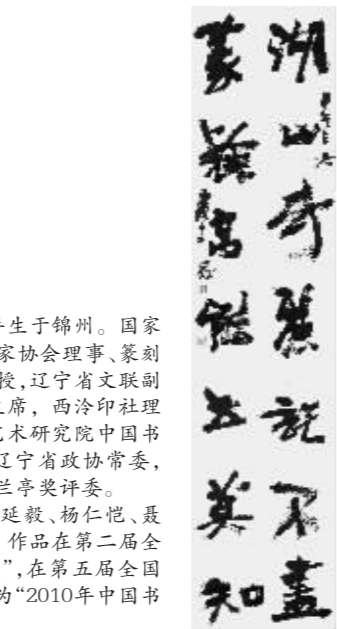 生于锦州。国家
家协会理事、篆刻
授,辽宁省文联副
席,西泠印社理
术研究院中国书
辽宁省政协常委,
兰亭奖评委。
延毅、杨仁恺、聂
作品在第二届全
”,在第五届全国
为“2010年中国书
湖山奇麗說不盡
篆籀高莫知